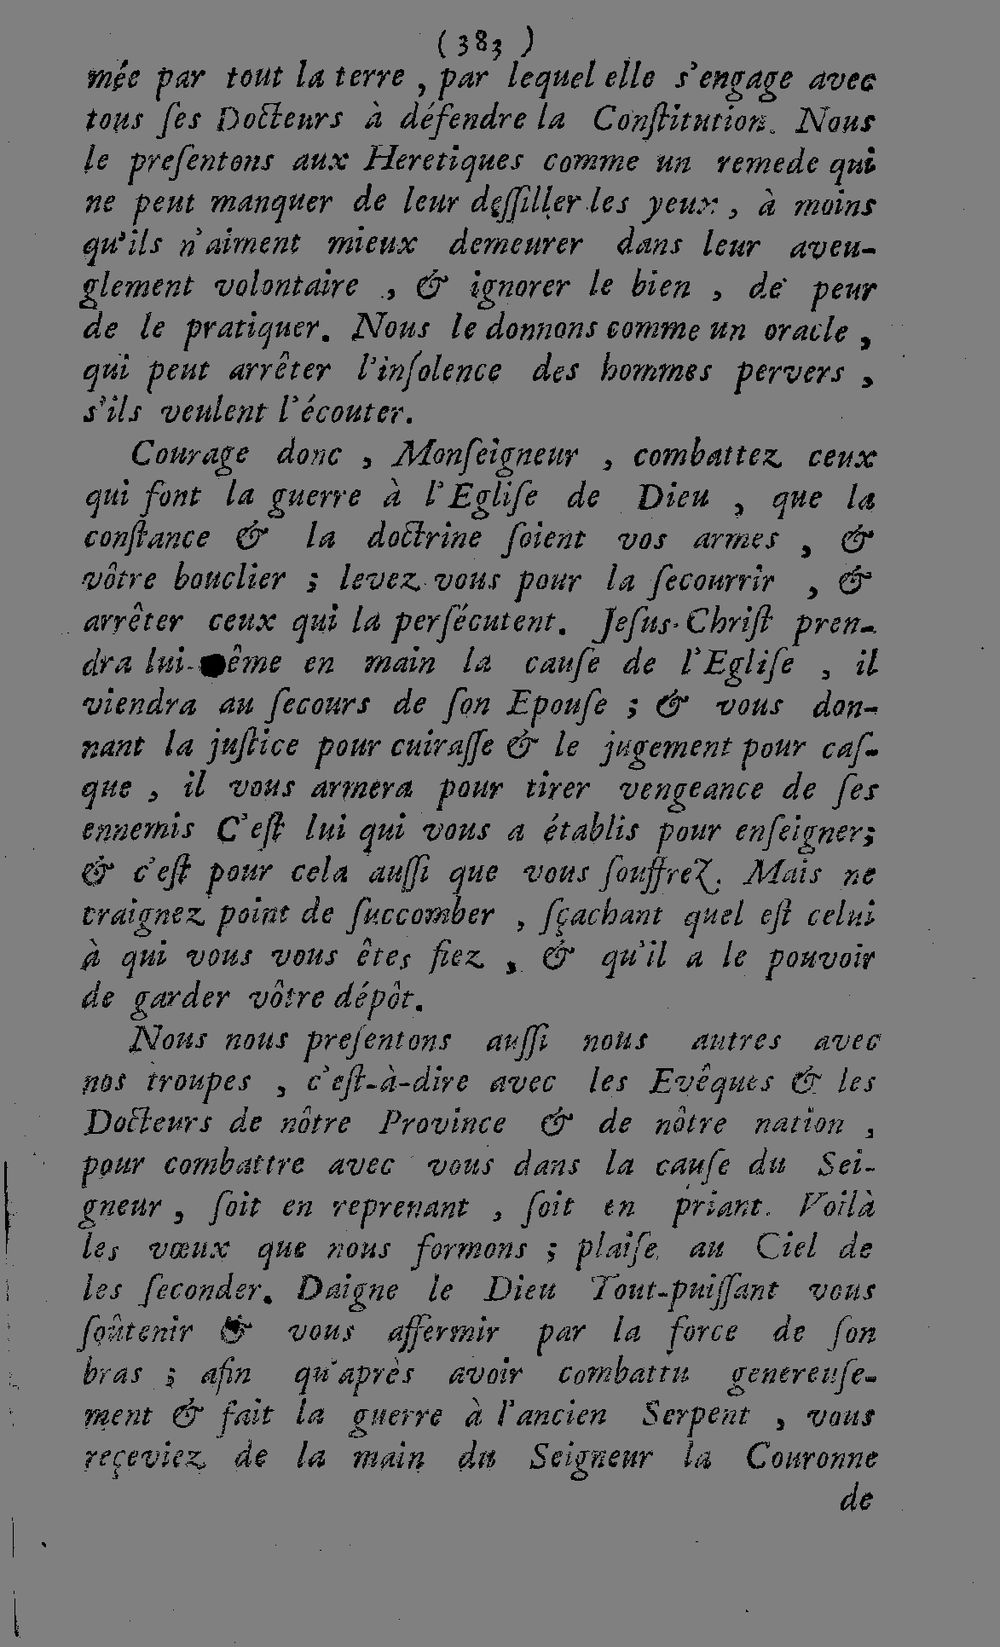 ( 383 )
mée par tout la terre , par lequel elle s'engage avec
tous ſes Docteurs à défendre la Conſtitution. Nous
le preſentons aux Heretiques comme un remede qui
ne peut manquer de leur deſſiller les yeux , à moins
qu'ils n'aiment mieux demeurer dans leur aveu-
glement volontaire , & ignorer le bien , de peur
de le pratiquer. Nous le donnons comme un oracle ,
qui peut arrêter l'inſolence des hommes pervers ,
s'ils veulent l'écouter.
Courage donc , Monſeigneur , combattez ceux
qui font la guerre à l'Egliſe de Dieu , que la
conſtance & la doctrine ſoient vos armes , &
vôtre bouclier ; levez vous pour la ſecourrir , &
arrêter ceux qui la perſécutent. Jeſus-Chriſt pren-
dra lui-même en main la cauſe de l'Egliſe , il
viendra au ſecours de ſon Epouſe ; & vous don-
nant la juſtice pour cuiraſſe & le jugement pour caſ-
que , il vous armera pour tirer vengeance de ſes
ennemis C'eſt lui qui vous a établis pour enſeigner;
& c'eſt pour cela auſſi que vous ſouffrez. Mais ne
craignez point de ſuccomber , ſçachant quel eſt celui
à qui vous vous êtes fiez , & qu'il a le pouvoir
de garder vôtre dépôt.
Nous nous preſentons auſſi nous autres avec
nos troupes , c'eſt-à-dire avec les Evêques & les
Docteurs de nôtre Province & de nôtre nation ,
pour combattre avec vous dans la cauſe du Sei-
gneur , ſoit en reprenant , ſoit en priant. Voilà
les vœux que nous formons ; plaiſe au Ciel de
les ſeconder. Daigne le Dieu Tout-puiſſant vous
ſoûtenir & vous affermir par la force de ſon
bras ; afin qu'après avoir combattu genereuſe-
ment & fait la guerre à l'ancien Serpent , vous
reçeviez de la main du Seigneur la Couronne
de